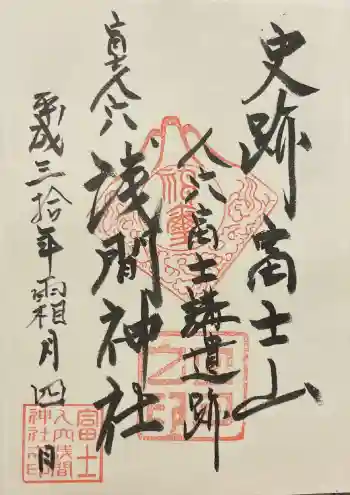 史跡富士山
人穴富士講遺跡
富士人穴
浅間神社
平成三拾年霜月四日
富士
人穴浅間
神社之印